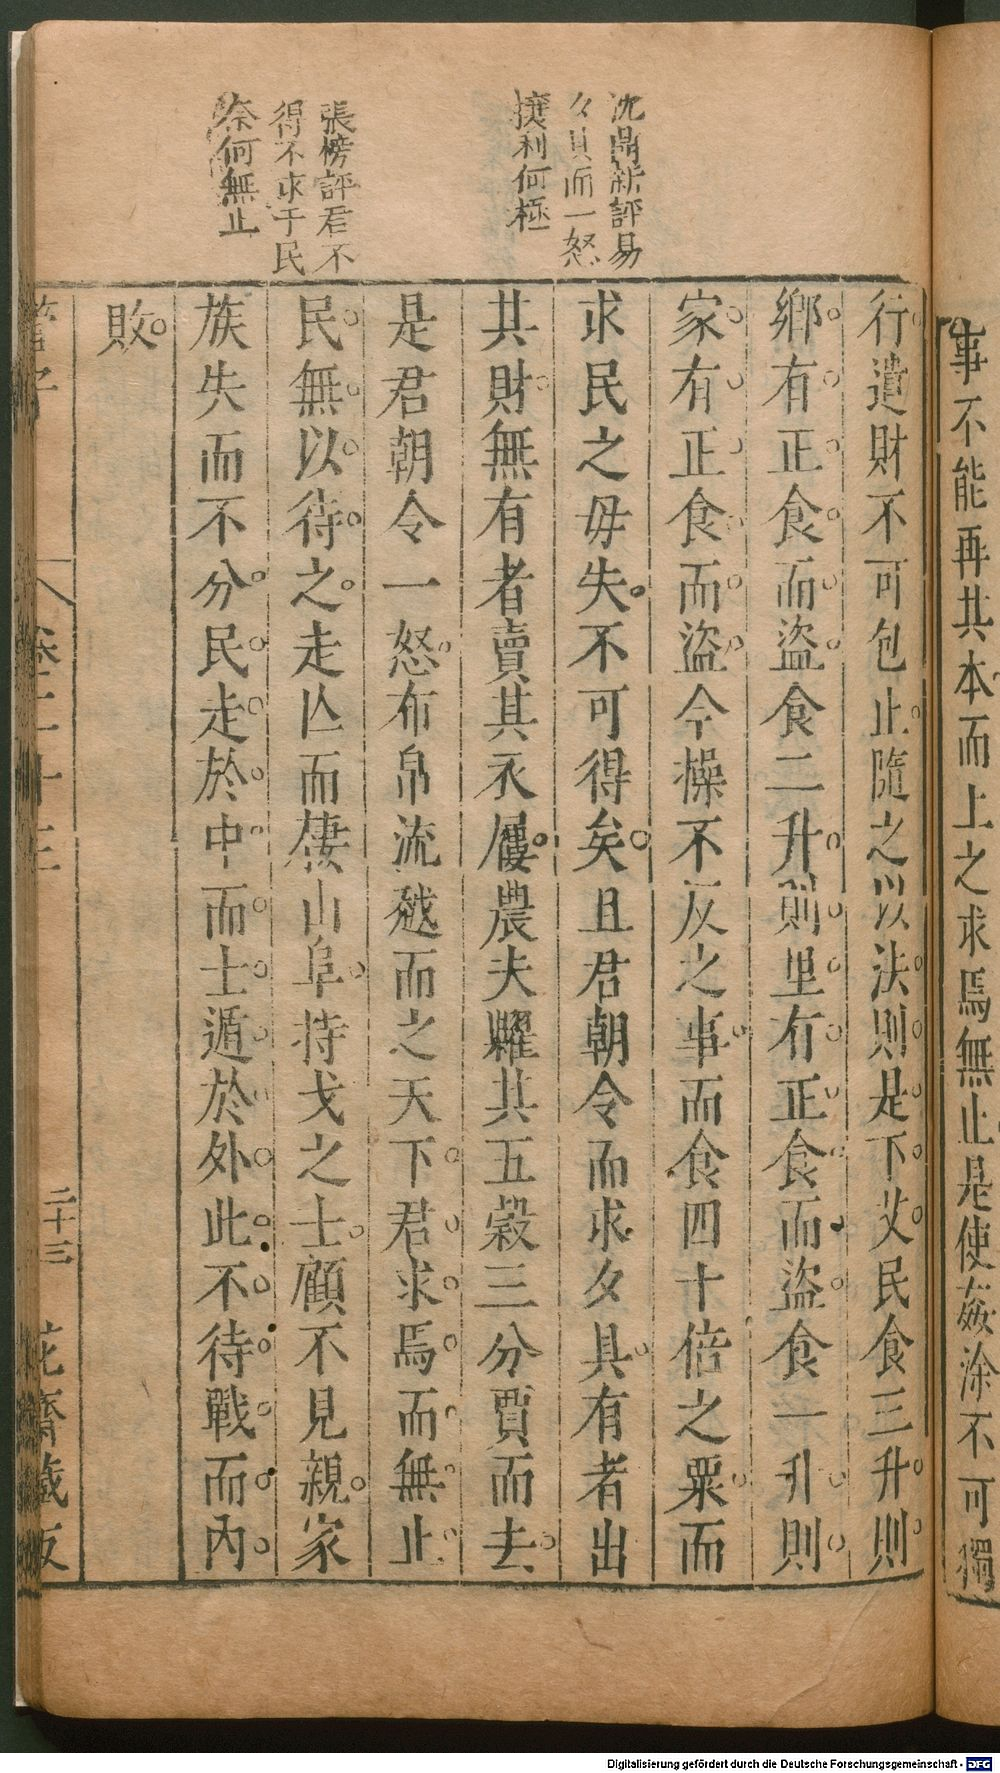 事不能再其本而上之求焉無止是使姦涂不可獨
沈鼎新評易
夕具而一怒
攘利何極
張榜評君不
得不求于民
奈何無止
行遺財不可包止隨之以法則是下艾民食三升則
鄉有正食而盜食二升則里有正食而盜食一升則
家有正食而盜今操不反之事而食四十倍之粟而
求民之毋失不可得矣且君朝令而求夕具有者出
其財無有者賣其衣屨農夫糶其五穀三分賈而去
是君朝令一怒布帛流越而之天下君求焉而無止
民無以待之走亾而棲山阜持戈之士顧不見親家
族失而不分民走於中而士遁於外此不待戰而內
敗
管子
卷二十三
二十三
花齋藏板
Digitalisierung gefördert durch die Deutsche Forschungsgemeinschaft - DFG